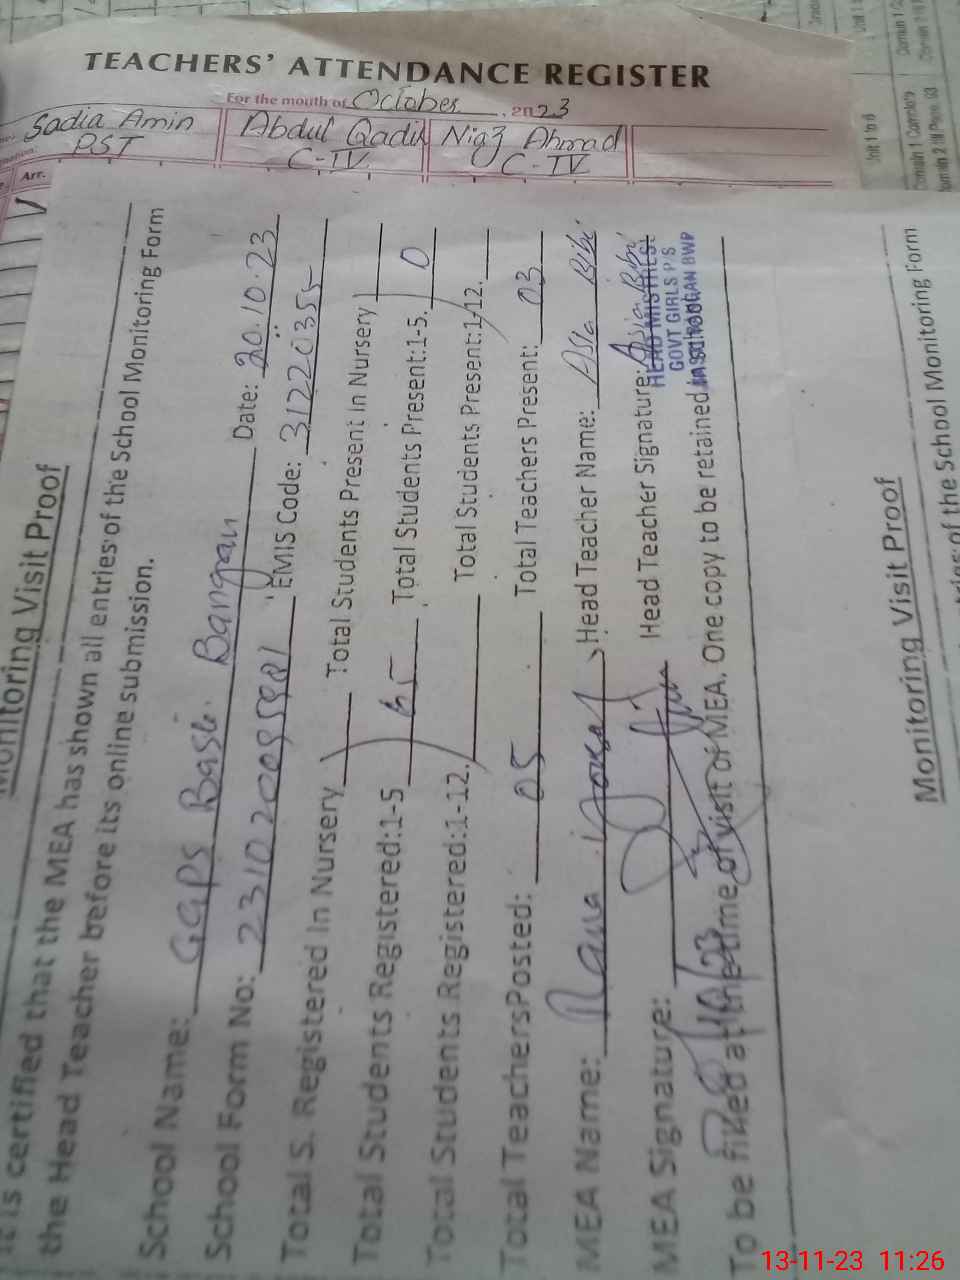 TEACHERS' ATTENDANCE REGISTER
For the month of October 2023
Sadia Amin
PST
Abdul Qadir
C-IV
Niaz Ahmad
C-IV
Arr.
Monitoring Visit Proof
It is certified that the MEA has shown all entries of the School Monitoring Form
the Head Teacher before its online submission.
School Name: GGPS Basti Bangan Date: 20.10.23
School Form No: EMIS Code: 31220355
Total S. Registered In Nursery Total Students Present In Nursery
Total Students Registered:1-5 65 Total Students Present:1-5. 0
Total Students Registered:1-12. Total Students Present:1-12.
Total TeachersPosted: 05 Total Teachers Present: 03
MEA Name: Rana Yousaf Head Teacher Name: Asia Bibi
MEA Signature: Head Teacher Signature: Asia Bibi
HEAD MISTRESS
GOVT GIRLS P/S
BWP
To be filled at the time of visit of MEA, One copy to be retained in school
Monitoring Visit Proof
entries of the School Monitoring Form
13-11-23 11:26